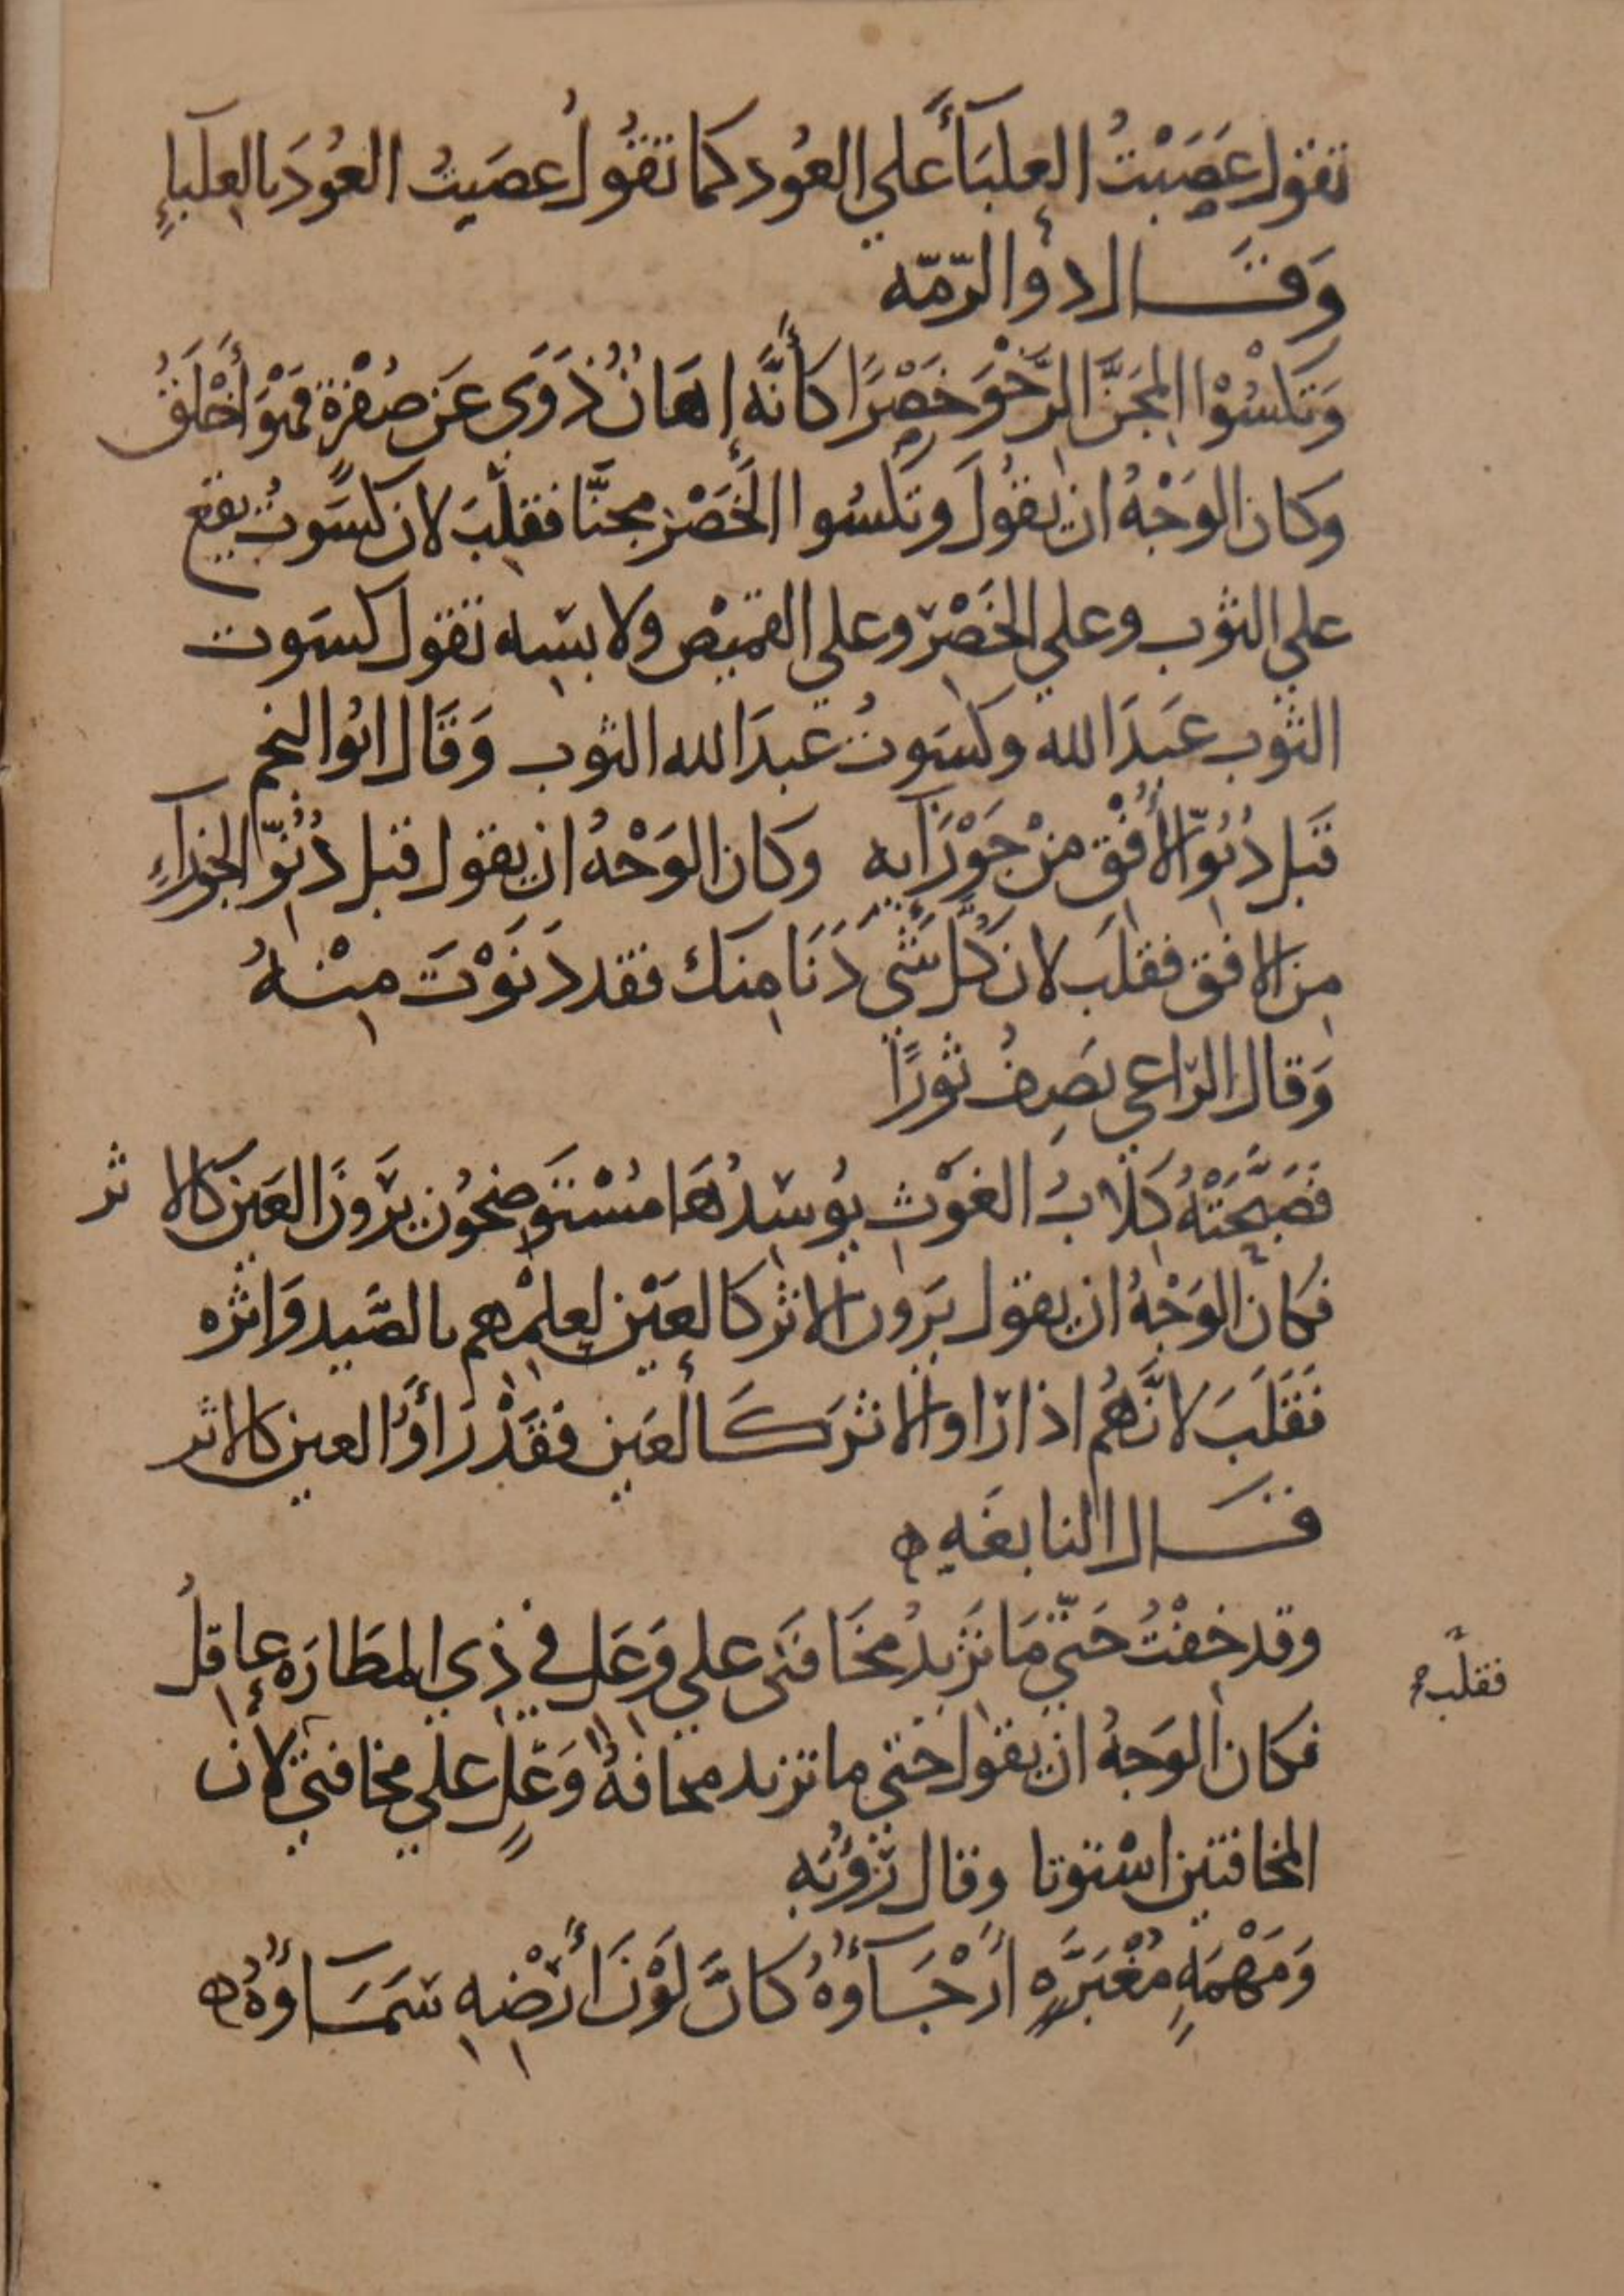 تقول عَصَبْتُ العِلبَأَ علي العُود كما تقُولُ عصَبتُ العُودَ بالعِلبآءِ
وَقَــال ذو الرّمّه
وَتَكْسُوْا المِجَنَّ الرَّخْوَ خَصْرًا كأنَّه إهَانٌ ذَوَي عَن صُفْرَة فَهْوَ أَخْلَقُ
وكان الوَجْهُ ان يقُولَ وتكسُوا الخَصْر مجنًّا فقلَبَ لان كسَوتُ يقع
علي الثوب وعلي الخَصْر وعلي القميص ولابسِه تقول كسَوت
الثوب عَبدَ الله وكسَوتُ عبدَ الله الثوب وَقَال ابُوا النجم
قَبل دُنُوِّ الأُفْقِ مِنْ جَوْزَآيه وكان الوَجْهُ ان يقول قبل دُنُوِّ الجَوزآءِ
مِن الافق فقلَب لان كُلّ شَيٍ دَنَا مِنك فقد دَنَوْتَ مِنْـهُ
وَقال الرّاعي يَصِفُ ثورًا
فصَبَّحَتْهُ كِلابُ الغَوْثِ يُوسِدُهَا مُسْتَوضِحُون يَرَونَ العَينَ كالاثر
فكان الوَجْهُ ان يقول يَرَون الاثر كالعَيْن لعِلْمِهم بالصَّيد وَاثره
فَقَلَبَ لانَّهُم اذا رَاوا الاثر كَـالعَين فَقَدْ رَأوُا العين كالاثر
قَــال النابغَه
وقد خِفْتُ حَتّي مَا تزيدُ مخَافَتي علي وَعَلٍ في ذِي المَطَارَه عاقِلُ
فكان الوَجهُ ان يقول حتي ما تزيد مخافةُ وَعَلٍ علي مخافتي لان
فقلب
المخافتين اسْتوتا وقال رُؤبَه
وَمَهْمَهٍ مُغْبَرَّهٍ أَرْجَـآؤُهُ كانَّ لَوْنَ أَرْضِهِ سَمَـاؤُهُ